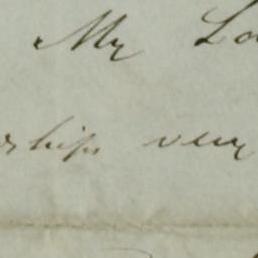 My Lo
rships very